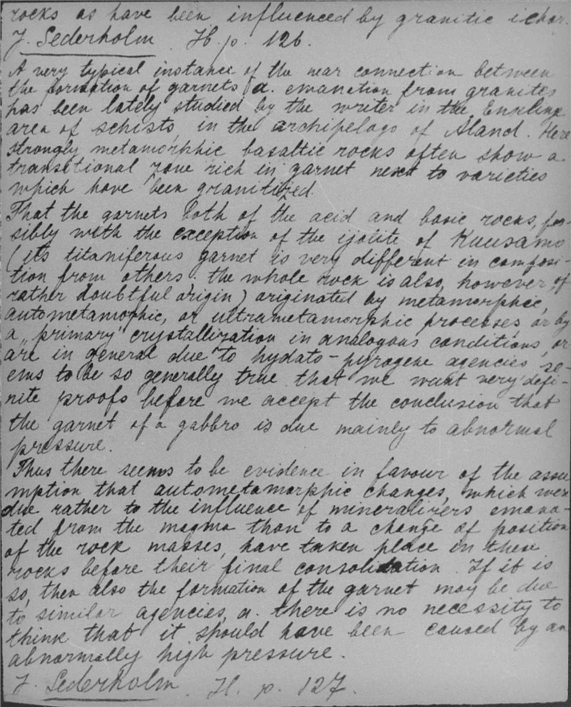 rocks as have been influenced by granitic ichor.
J. Sederholm. H. p. 126.
A very typical instance of the near connection between
the formation of garnets a. emanation from granites
has been lately studied by the writer in the Enklinge
area of schists, in the archipelago of Åland. Here
strongly metamorphic basaltic rocks often show a
transitional zone rich in garnet next to varieties
which have been granitized.
That the garnets both of the acid and basic rocks, pos-
sibly with the exception of the ijolite of Kuusamo
(its titaniferous garnet is very different in composi-
tion from others: the whole rock is also, however of
rather doubtful origin) originated by metamorphic,
autometamophic, or ultrametamorphic processes, or by
a „primary" crystallization in analogous conditions, or
are in general due to hydato-pyrogene agencies, se-
ems to be so generally true that we want very defi-
nite proofs before we accept the conclusion that
the garnet of a gabbro is due mainly to abnormal
pressure.
Thus there seems to be evidence in favour of the assu
mption that autometamorphic changes, which were
due rather to the influence of mineralizers emana-
ted from the magma than to a change of position
of the rock masses, have taken place in these
rocks before their final consolidation. If it is
so, then also the formation of the garnet may be due
to similar agencies, a. there is no necessity to
think that it should have been caused by an
abnormally high pressure.
J. Sederholm. H. p. 127.